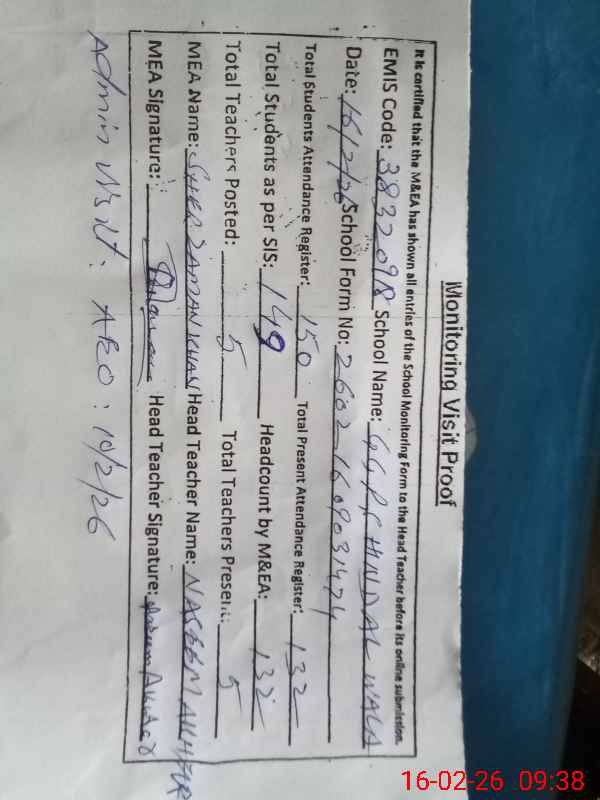 Monitoring Visit Proof
It is certified that the M&EA has shown all entries of the School Monitoring Form to the Head Teacher before its online submission.
EMIS Code: 3832098 School Name: GGPS HINDAL WALA
Date: 16/2/26 School Form No: 26021609031474
Total Students Attendance Register: 150 Total Present Attendance Register: 132
Total Students as per SIS: 149 Headcount by M&EA: 132
Total Teachers Posted: 5 Total Teachers Present: 5
MEA Name: SHER ZAMAN KHAN Head Teacher Name: NASEEM AKHTAR
MEA Signature: Head Teacher Signature:
Admin Visit: AEO: 10/2/26
16-02-26 09:38